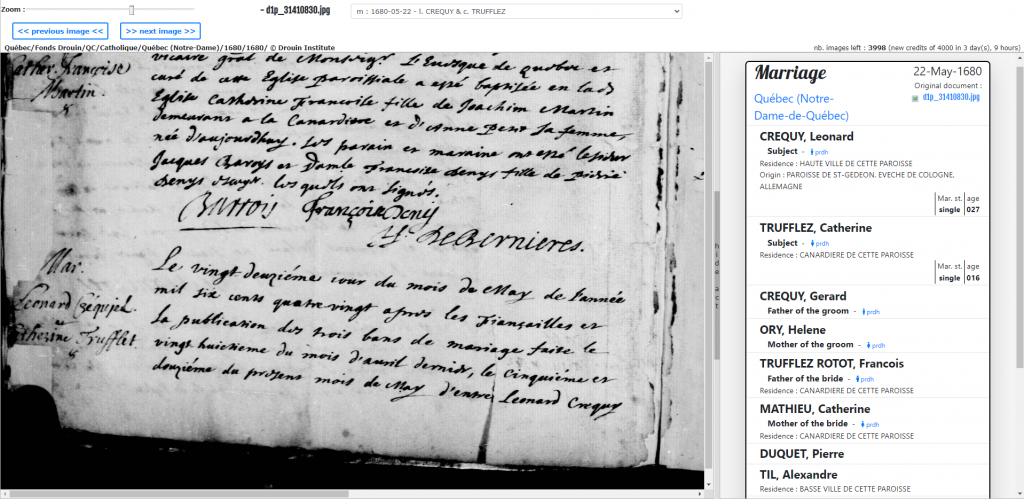 Zoom :
- d1p_31410830.jpg
m : 1680-05-22 - l. CREQUY & c. TRUFFLEZ
<< previous image <<
>> next image >>
Québec/Fonds Drouin/QC/Catholique/Québec (Notre-Dame)/1680/1680/ © Drouin Institute
nb. images left : 3998 (new credits of 4000 in 3 day(s), 9 hours)
vicaire gnal de Monseigr L'Euesque de quebec et
curé de cette Eglise Paroissiale a esté baptisée en lad
Eglise Catherine Francoise fille de Joachim Martin
demeurant a la Canardiere et d'Anne Petit sa femme,
née d'aujourdhuy. Les parain et maraine ont esté le sieur
Jacques Barroys et Damle Francoise denys fille de Pierre
Denys Escuyr. lesquels ont signés.
Cather. françoise
Martin.
Barrois françoise Denis
H. DeBernieres.
Mar.
Leonard
Catherine Trufflet.
Le vingt deuziéme jour du mois de May de l'année
mil six cents quatre vingt apres les Fiançailles et
la publication des trois bans de mariage faite le
vingt huictieme du mois d'auril dernier, le cinquiéme et
douziéme du present mois de May d'entre Leonard Crequy
hide act
Marriage
22-May-1680
Original document :
d1p_31410830.jpg
Québec (Notre-
Dame-de-Québec)
CREQUY, Leonard
Subject - prdh
Residence : HAUTE VILLE DE CETTE PAROISSE
Origin : PAROISSE DE ST-GEDEON. EVECHE DE COLOGNE,
ALLEMAGNE
Mar. st. age
single 027
TRUFFLEZ, Catherine
Subject - prdh
Residence : CANARDIERE DE CETTE PAROISSE
Mar. st. age
single 016
CREQUY, Gerard
Father of the groom - prdh
ORY, Helene
Mother of the groom - prdh
TRUFFLEZ ROTOT, Francois
Father of the bride - prdh
Residence : CANARDIERE DE CETTE PAROISSE
MATHIEU, Catherine
Mother of the bride - prdh
Residence : CANARDIERE DE CETTE PAROISSE
DUQUET, Pierre
TIL, Alexandre
Residence : BASSE VILLE DE CETTE PAROISSE